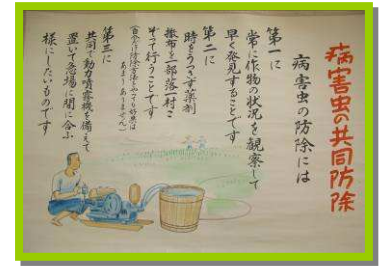 病害虫の共同防除
病害虫の防除には
第一に
常に作物の状況を観察して
早く発見することです
第二に
時をうつさず薬剤
撒布を部落一村こ
ぞって行うことです
第三に
共同で動力噴霧機を備えて
置いて急場に間に合ふ
様にしたいものです